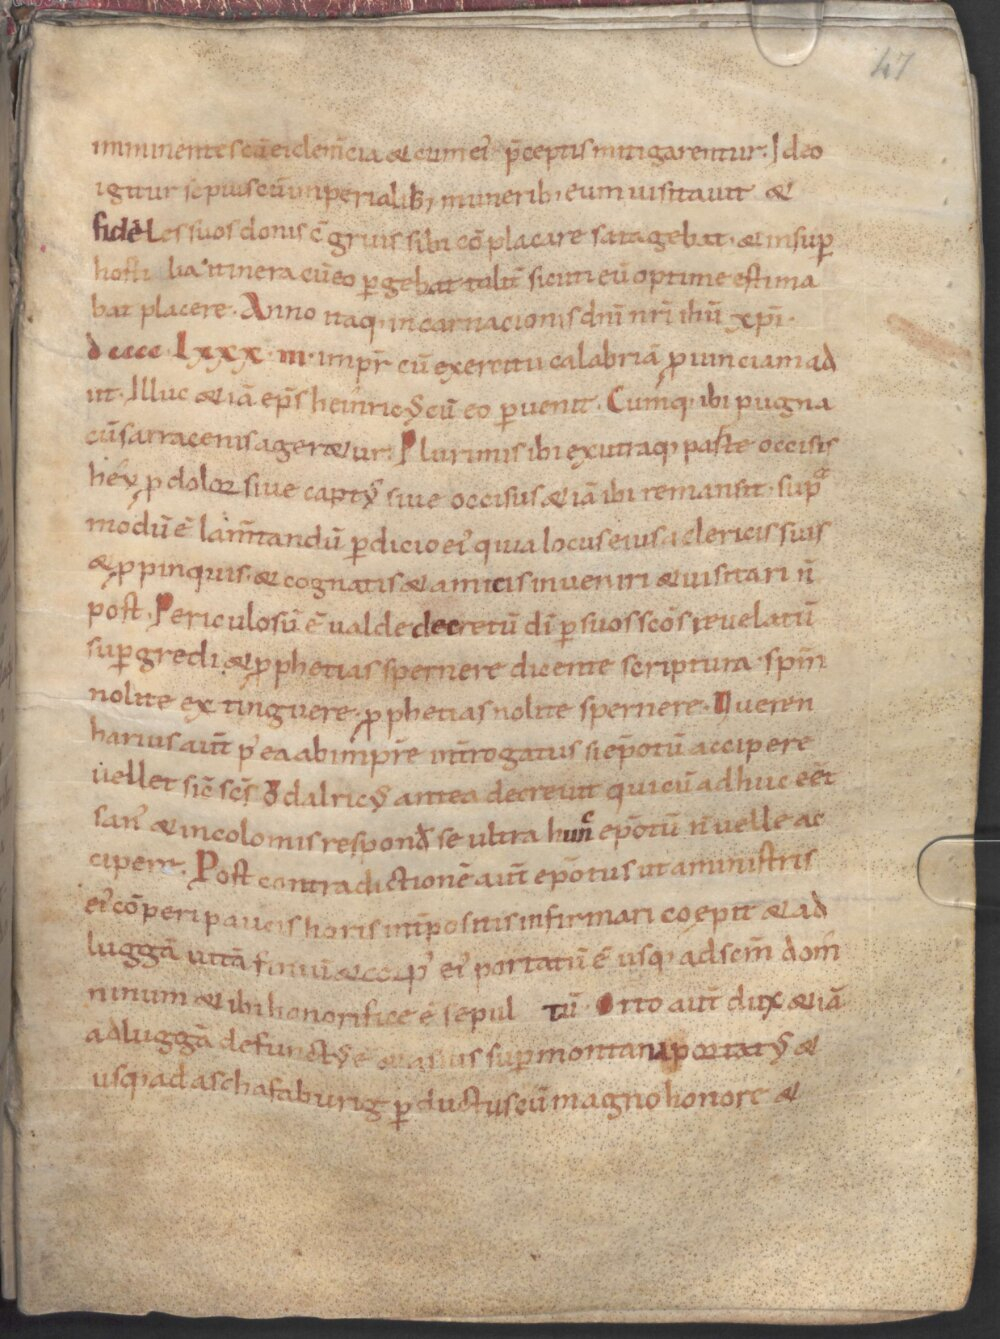 47
imminentes cū ei clem̄cia & cum ei' p̄ceptis mitigarentur. Ideo
igitur sepius cū imperialib; munerib; eum uisitauit &
fidēles suos donis c̄gruis sibi cōplacare satagebat. & insup̄
hosti lia itinera cū eo ꝑgebat talit̄ sicuti eū optime estima
bat placere. Anno itaq; incarnacionis dn̄i nr̄i ihū xp̄i.
dcccc lxxx. iii. impr̄ cū exercitu calabriā ꝓuinciam ad
iit. Illuc & iā ep̄s heinricꝰ cū eo ꝑuenit. Cumq; ibi pugna
cū sarracenis ager&ur. Plurimis ibi ex utraq; parte occisis
heu ꝓ dolor siue captꝰ siue occisus & iā ibi remansit. supᵃ
modū ē lam̄tandū ꝑdicio ei' quia locus eius a clericis suis
& ꝓpinquis. & cognatis & amicis inueniri & uisitari n̄
post. Periculosū ē ualde decretū dī ꝑ suos scōs reuelatū
suꝑgredi. & ꝓphetias spernere dicente scriptura. spm̄
nolite extinguere. ꝓphetias nolite spernere. Ŋueren
harius aut̄ p' ea ab impr̄e int̄rogatus si ep̄otū accipere
uellet sic̄ scs̄ Ŏdalricꝰ antea decreuit qui cū adhuc eēt
san' & incolomis respond̄ se ultra hunᶜ ep̄otū n̄ uelle ac
cipere. Post contradictionē aut̄ ep̄otus ut a ministris
ei' cōperi paucis horis int̄positis infirmari coepit & ad
luggā uitā finiuit & corp' ei' portatū ē usq; ad scm̄ dom̄
ninum & ibi honorifice ē sepul tū. Otto aut̄ dux & iā
ad luggā defunctꝰ ē & uasius suꝑ montana portatꝰ &
usq; ad aschafaburig ꝑductus cū magno honore &